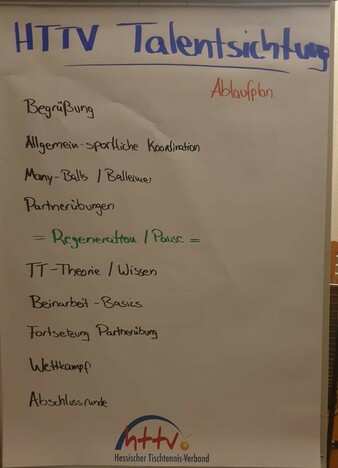 HTTV Talentsichtung
Ablaufplan
Begrüßung
Allgemein-sportliche Koordination
Many-Balls / Balleimer
Partnerübungen
= Regeneration / Pause =
TT-Theorie / Wissen
Beinarbeit - Basics
Fortsetzung Partnerübung
Wettkampf
Abschlussrunde
httv
Hessischer Tischtennis-Verband